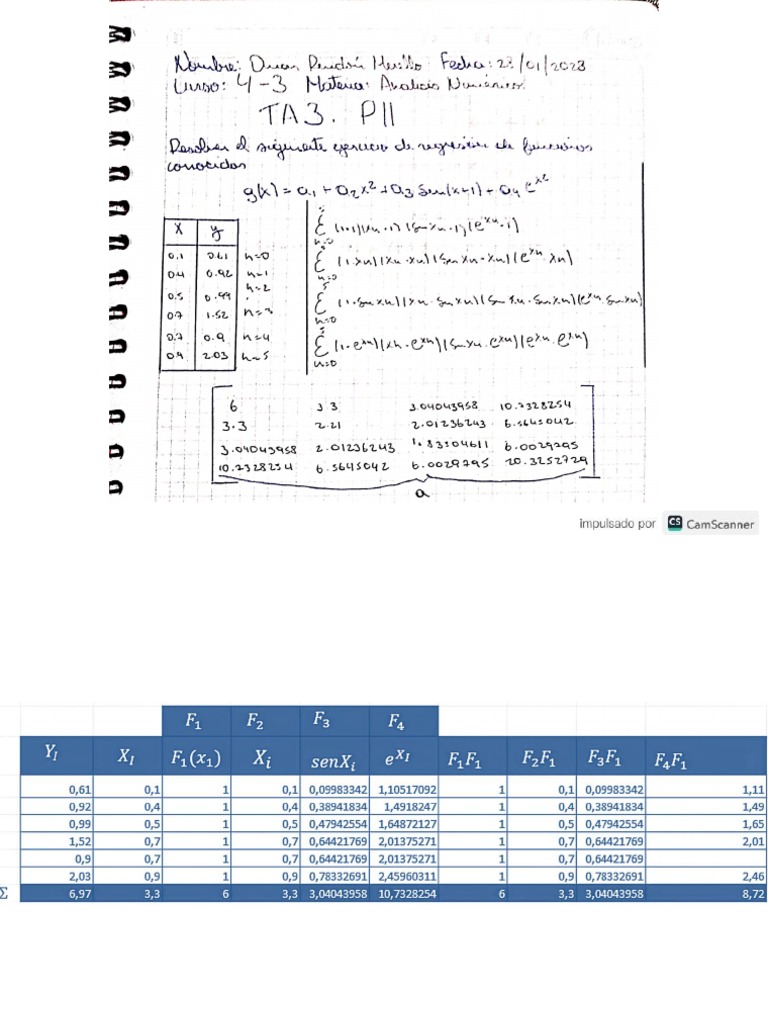 Nombre: Fecha: 23/01/2023
Curso: 4-3 Materia: Analisis Numérico
TA3. P11
Resolver el siguiente ejercicio de regresión de funciones
conocidas
g(x) = a1 + a2x² + a3 Sen(x+1) + a4 e^x²
x y
0.1 0.61 n=0
0.4 0.92 n=1
n=2
0.5 0.99
0.7 1.52 n=3
0.7 0.9 n=4
0.9 2.03 n=5
Σ (1·1)(xn·1)(senxn·1)(e^xn·1)
n=0
Σ (1·xn)(xn·xn)(senxn·xn)(e^xn·xn)
n=0
Σ (1·senxn)(xn·senxn)(senxn·senxn)(e^xn·senxn)
n=0
Σ (1·e^xn)(xn·e^xn)(senxn·e^xn)(e^xn·e^xn)
n=0
6 3.3 3.04043958 10.7328254
3.3 2.21 2.01236243 6.5645042
3.04043958 2.01236243 1.83504611 6.0029795
10.7328254 6.5645042 6.0029795 20.3252729
a
impulsado por CS CamScanner
F1 F2 F3 F4
YI XI F1(x1) Xi senXi e^XI F1F1 F2F1 F3F1 F4F1
0,61 0,1 1 0,1 0,09983342 1,10517092 1 0,1 0,09983342 1,11
0,92 0,4 1 0,4 0,38941834 1,4918247 1 0,4 0,38941834 1,49
0,99 0,5 1 0,5 0,47942554 1,64872127 1 0,5 0,47942554 1,65
1,52 0,7 1 0,7 0,64421769 2,01375271 1 0,7 0,64421769 2,01
0,9 0,7 1 0,7 0,64421769 2,01375271 1 0,7 0,64421769
2,03 0,9 1 0,9 0,78332691 2,45960311 1 0,9 0,78332691 2,46
Σ 6,97 3,3 6 3,3 3,04043958 10,7328254 6 3,3 3,04043958 8,72